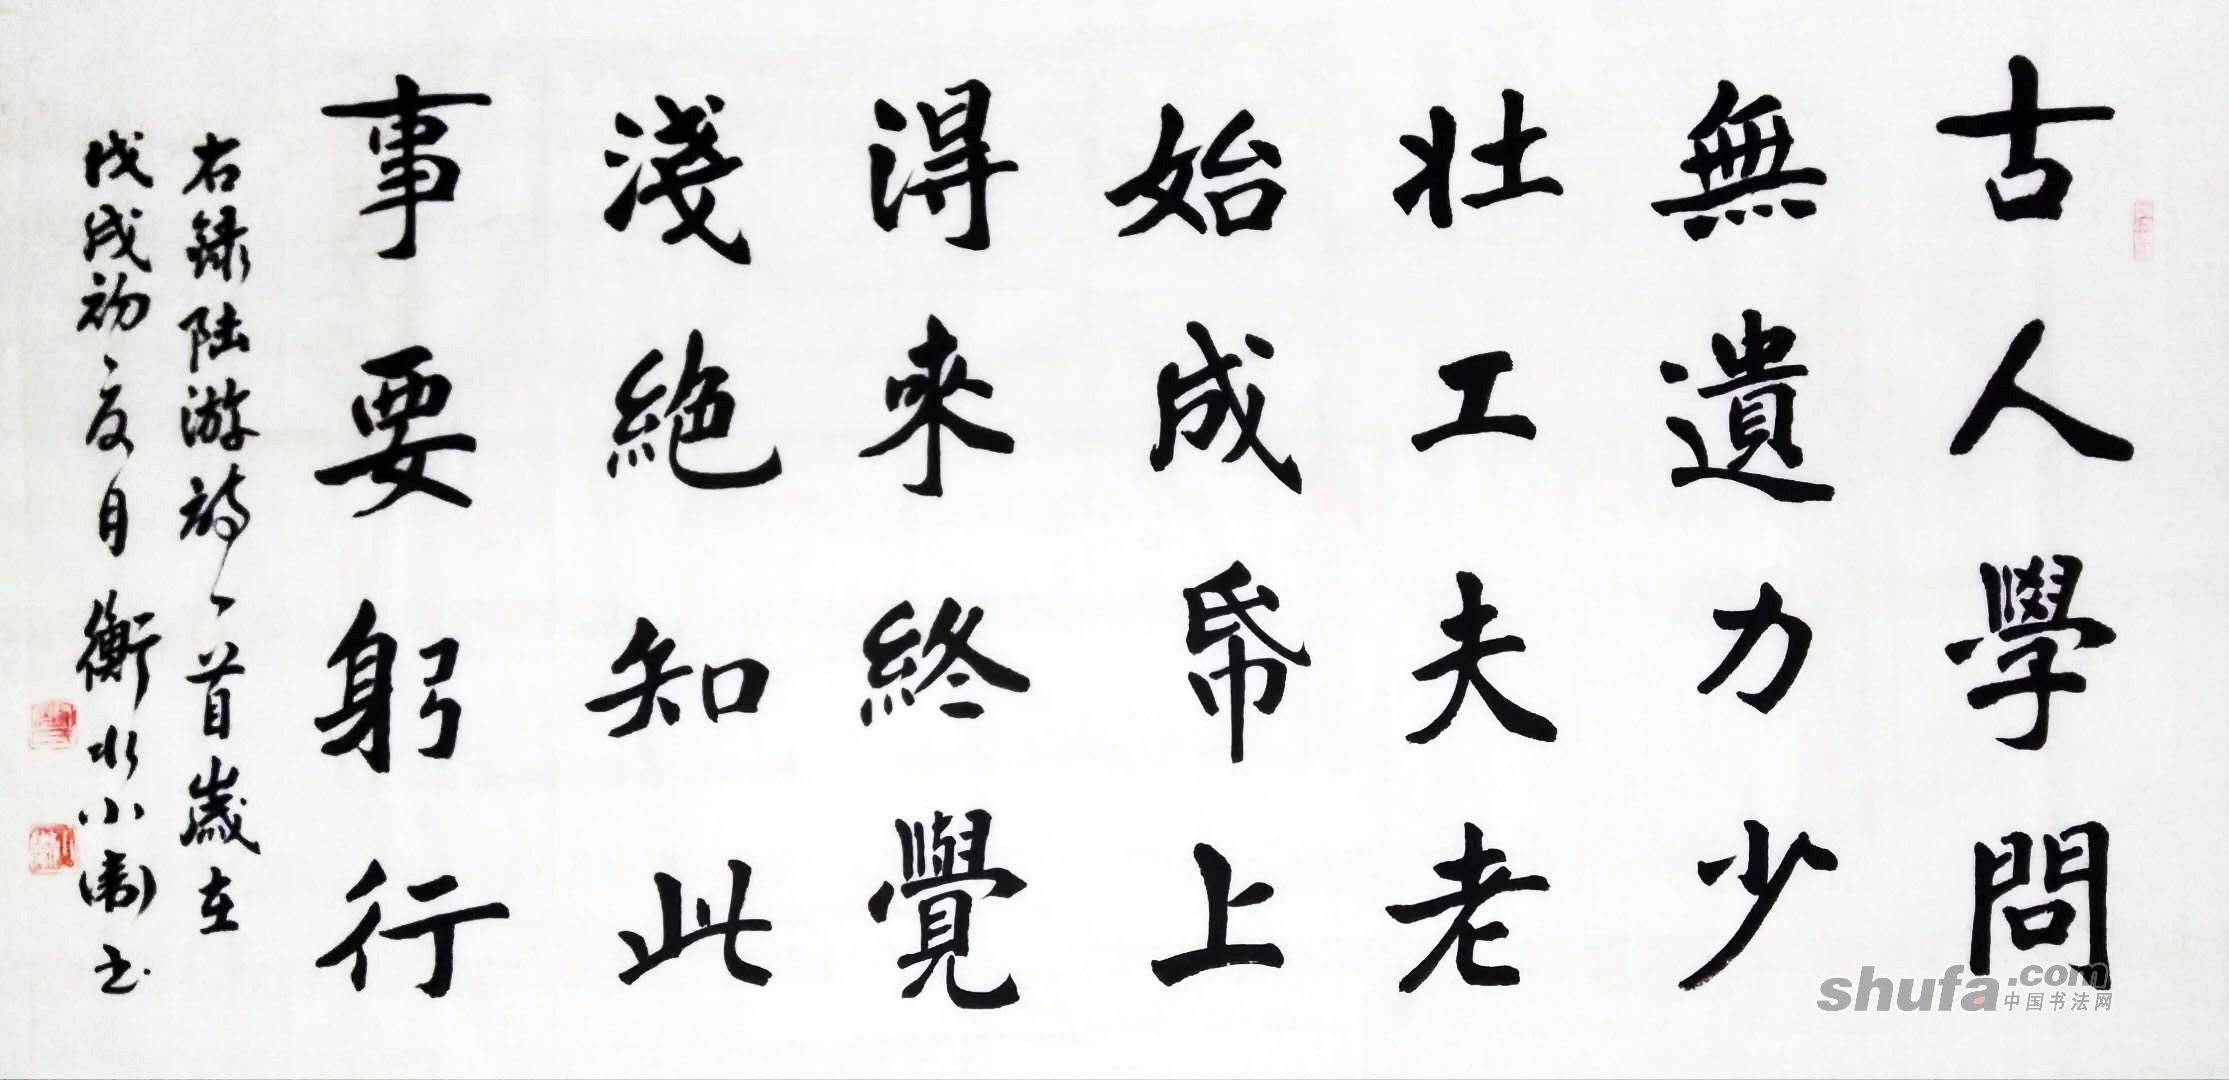 古人學問
無遺力少
壯工夫老
始成帋上
得來終覺
淺絶知此
事要躬行
右録陸游詩一首歲在
戊戌初夏月衡水小書
shufa.com
中国书法网